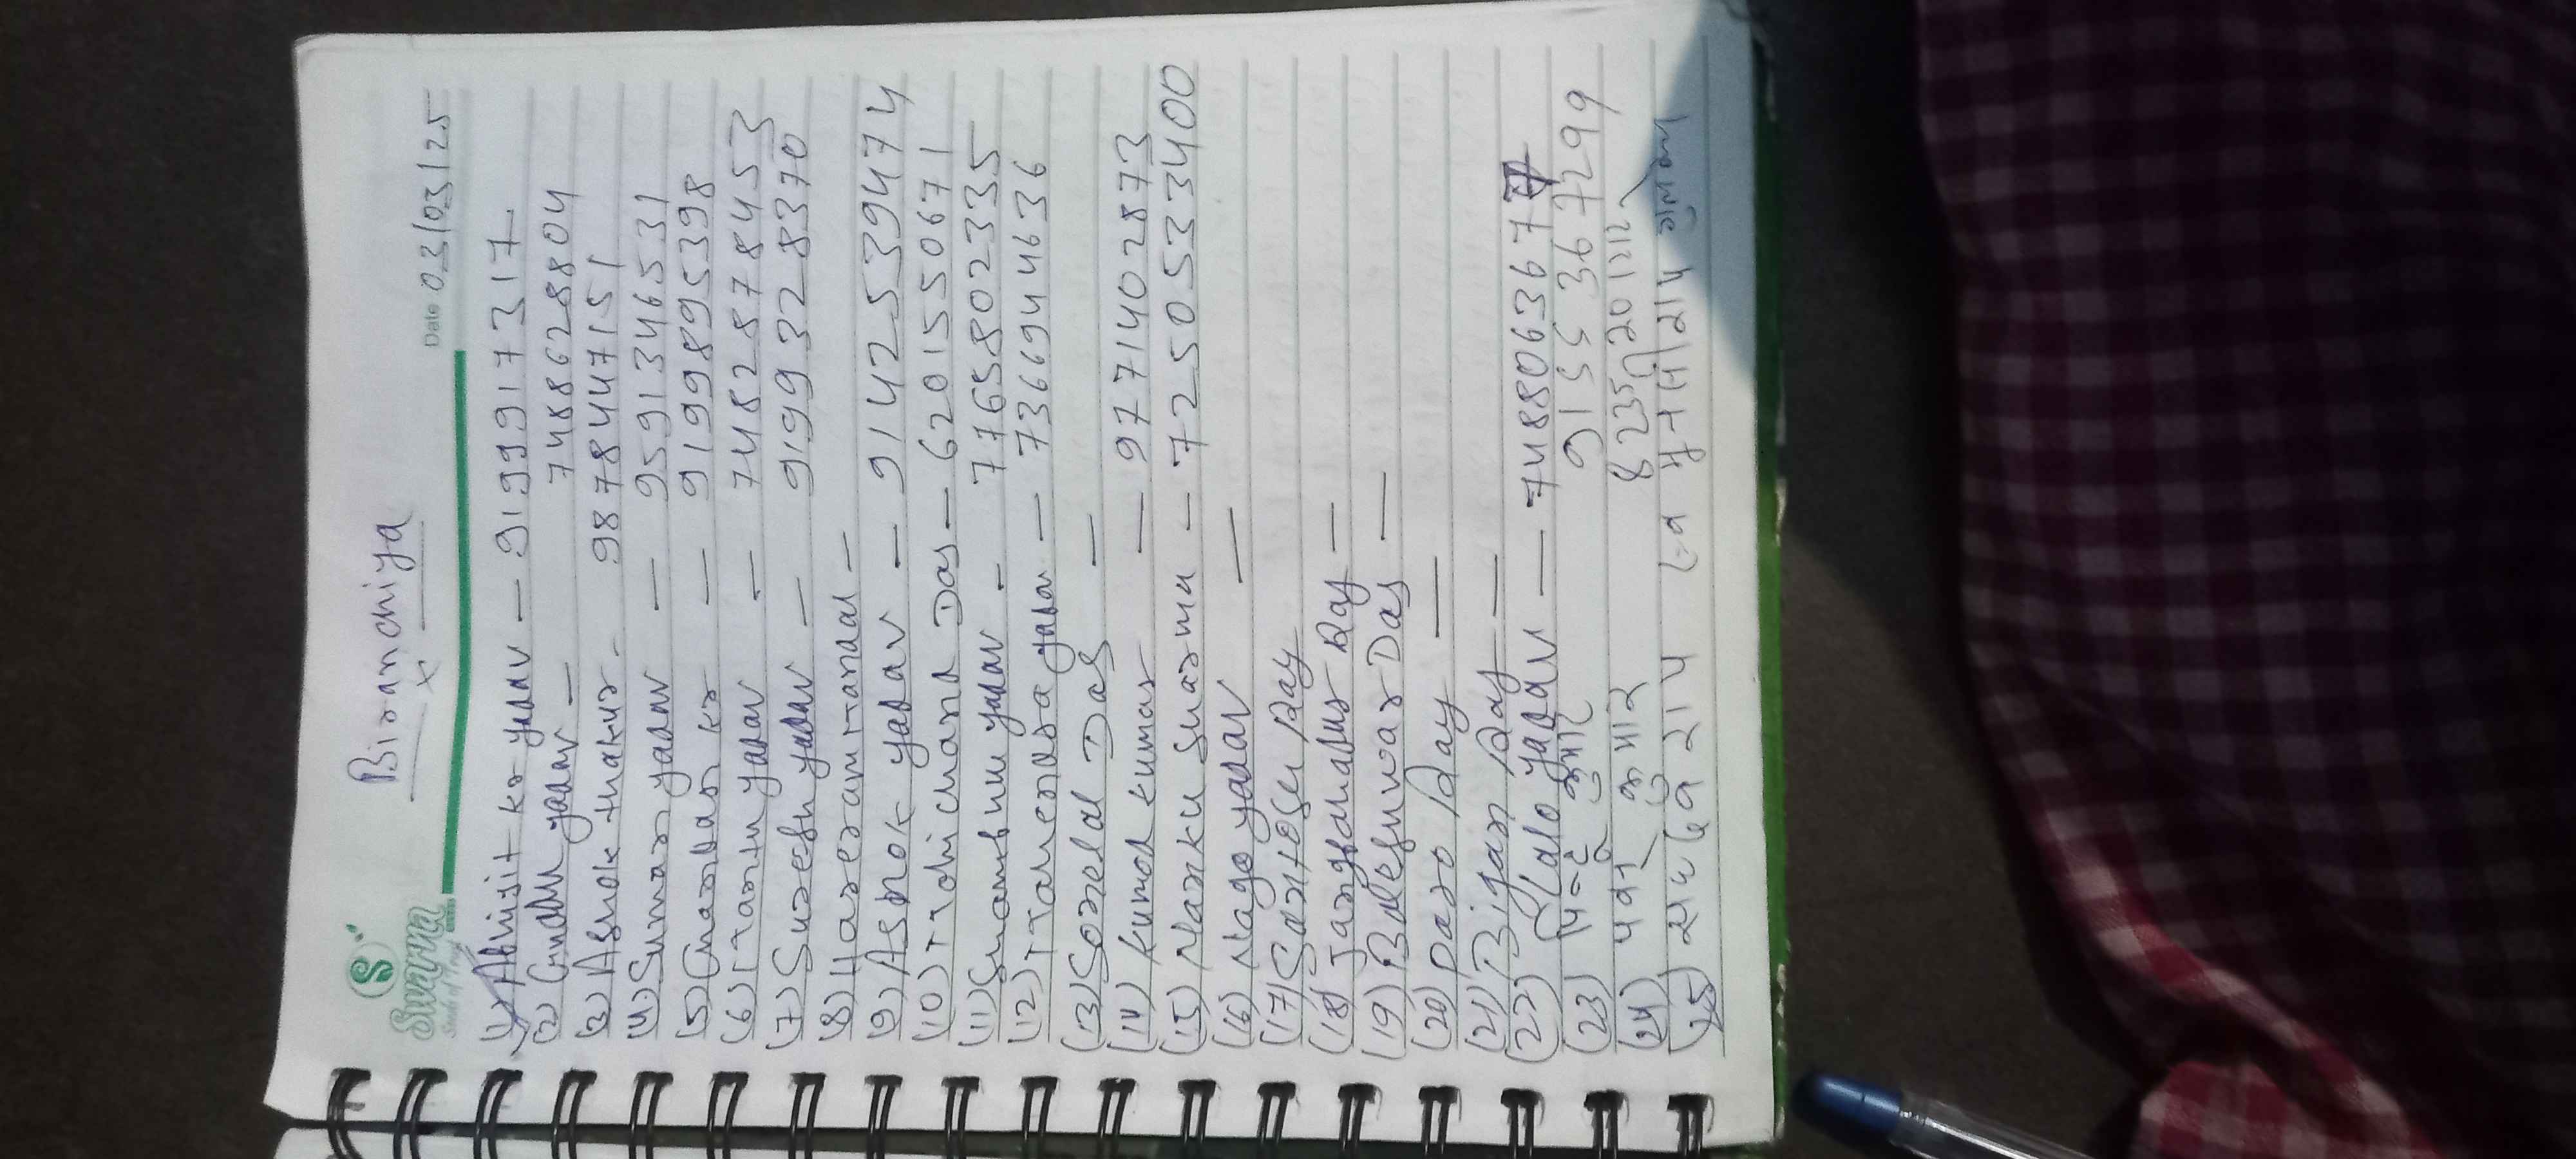 Swarna
Date 03/03/25
Biranchiya
(1) Abhijit kr yadav — 9199917317
(2) Guddu yadav — 7488628804
(3) Ashok thakur - 9878447151
(4) Suman yadav — 9591346531
(5) Chandan kr — 9199895398
(6) Mantu yadav — 7482878453
(7) Suresh yadav — 9199328370
(8) Hareram Mandal —
(9) Ashok yadav — 9142539474
(10) Das — 6201550671
(11) Shambhu yadav - 7765802335
(12) Mahendra yadav — 7366944636
(13) Das —
(14) Kumod kumar — 9771402873
(15) Nanku sharma — 7250533400
(16) Nago yadav —
(17) Santosh Ray
(18) Jangbahadur Ray —
(19) Baleshwar Das —
(20) Paro Ray —
(21) Bijan Ray —
(22) Lalo yadav — 748806367
(23) पिन्टू कुमार 9155367299
(24) पवन कुमार 8235
(25) राय